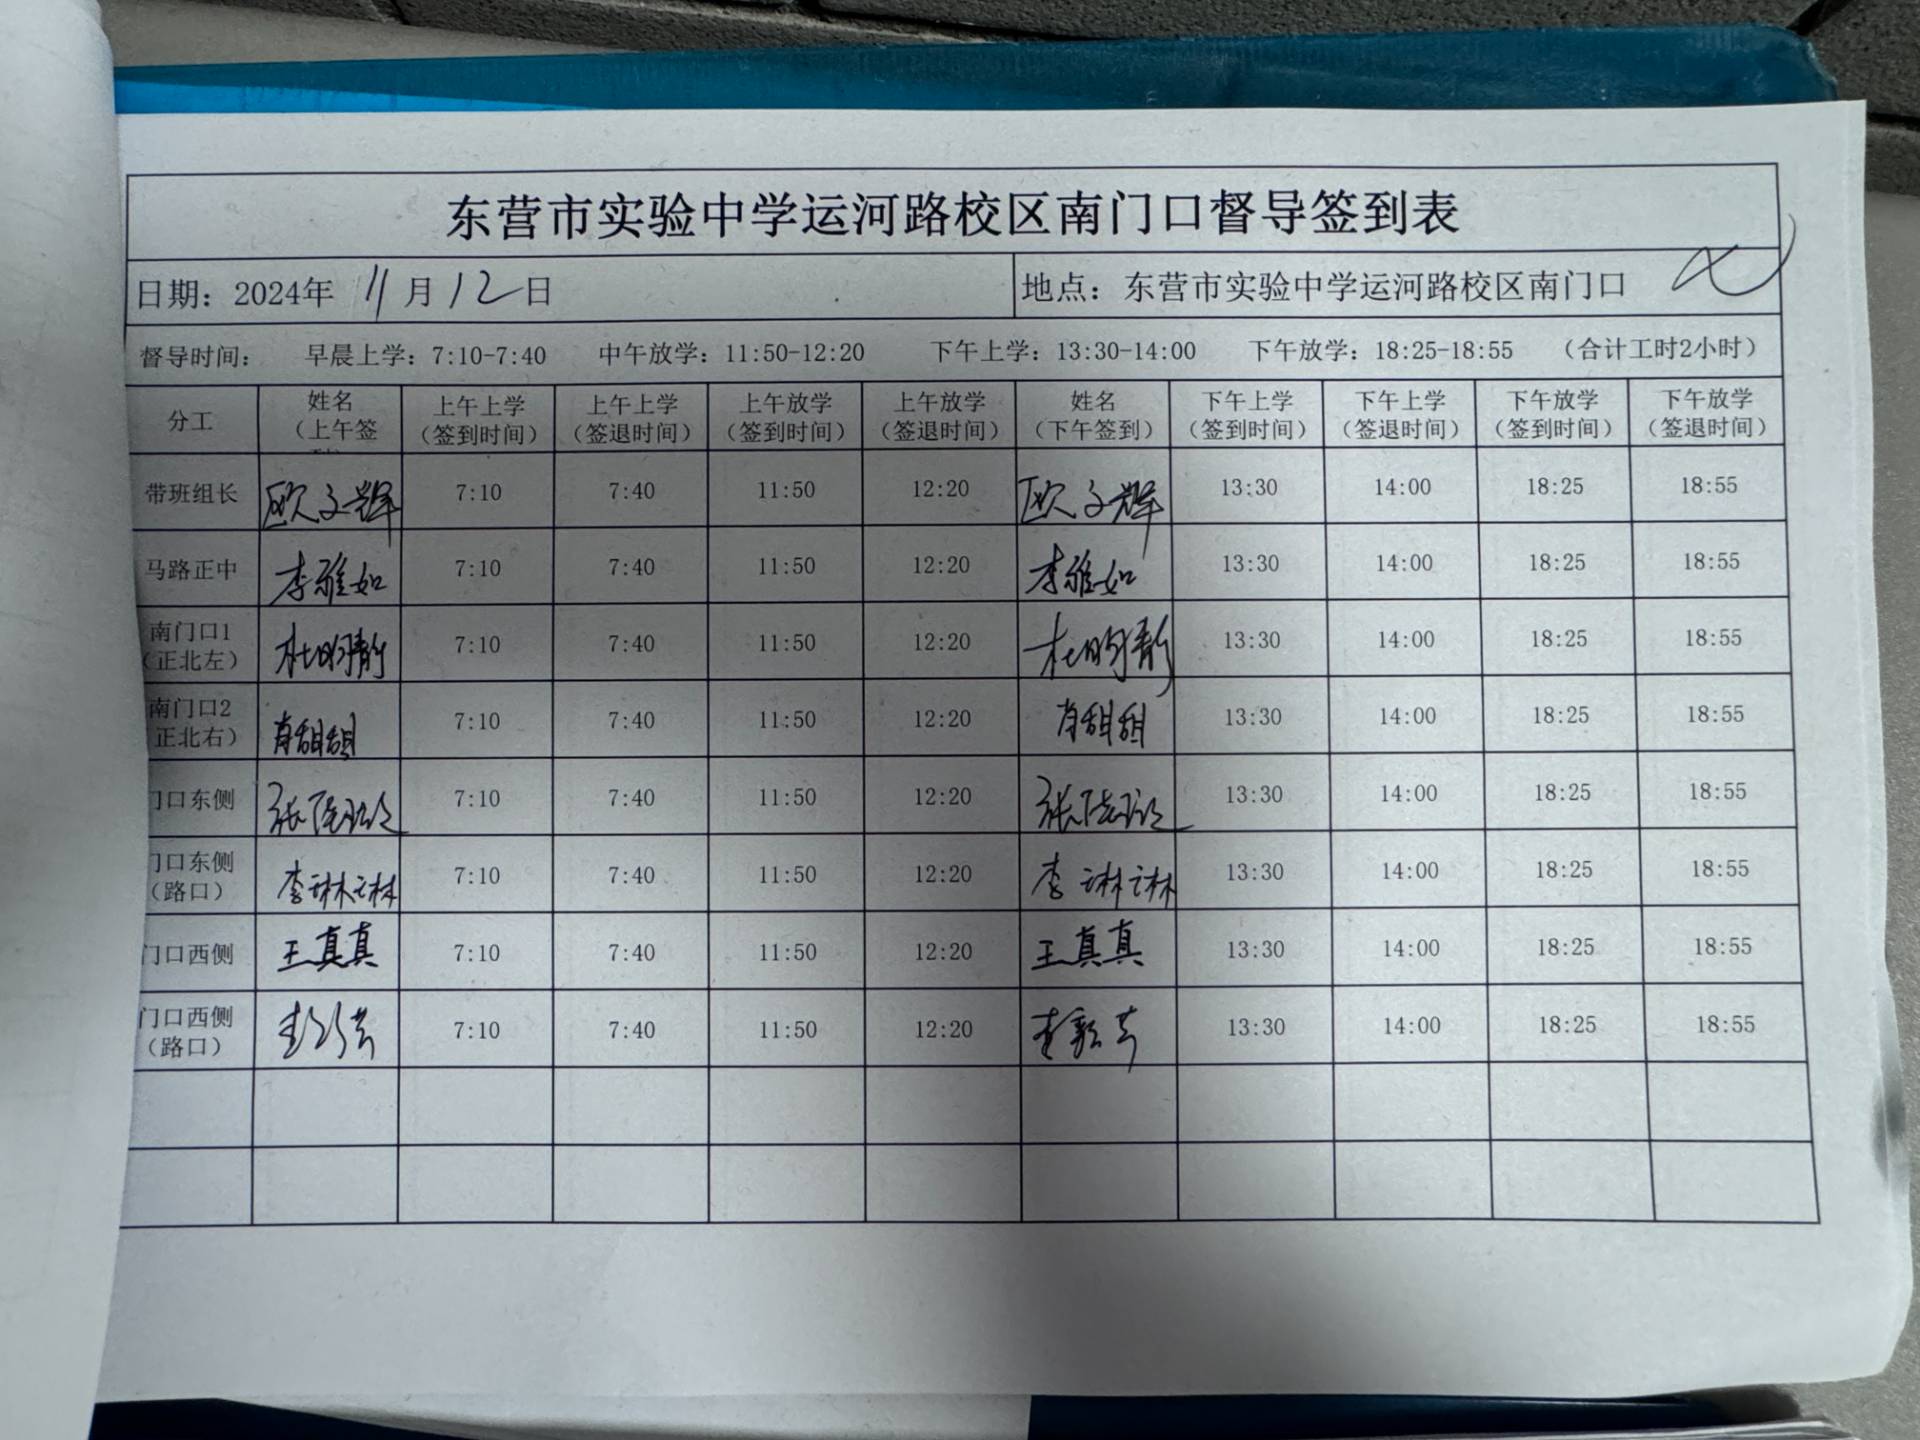 东营市实验中学运河路校区南门口督导签到表
日期：2024年 11月 12日 地点：东营市实验中学运河路校区南门口
督导时间： 早晨上学：7:10-7:40 中午放学：11:50-12:20 下午上学：13:30-14:00 下午放学：18:25-18:55 （合计工时2小时）
分工 姓名（上午签 上午上学（签到时间） 上午上学（签退时间） 上午放学（签到时间） 上午放学（签退时间） 姓名（下午签到） 下午上学（签到时间） 下午上学（签退时间） 下午放学（签到时间） 下午放学（签退时间）
带班组长 欧文辉 7:10 7:40 11:50 12:20 欧文辉 13:30 14:00 18:25 18:55
马路正中 李雅如 7:10 7:40 11:50 12:20 李雅如 13:30 14:00 18:25 18:55
南门口1（正北左） 7:10 7:40 11:50 12:20 13:30 14:00 18:25 18:55
南门口2（正北右） 肖甜甜 7:10 7:40 11:50 12:20 肖甜甜 13:30 14:00 18:25 18:55
门口东侧 7:10 7:40 11:50 12:20 13:30 14:00 18:25 18:55
门口东侧（路口） 李琳琳 7:10 7:40 11:50 12:20 李琳琳 13:30 14:00 18:25 18:55
门口西侧 王真真 7:10 7:40 11:50 12:20 王真真 13:30 14:00 18:25 18:55
门口西侧（路口） 7:10 7:40 11:50 12:20 13:30 14:00 18:25 18:55